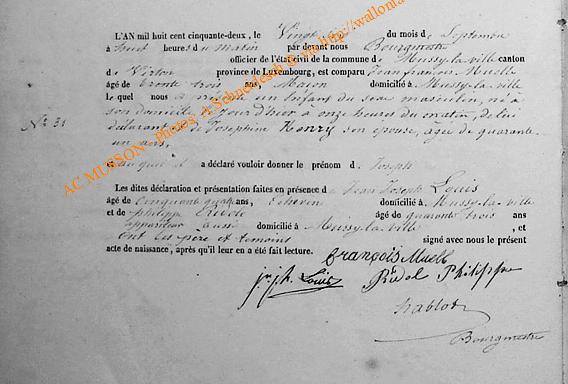 L'AN mil huit cent cinquante-deux, le Vingt du mois de Septembre
à huit heures du matin par devant nous Bourgmestre
officier de l'état civil de la commune de Mussy-la-ville canton
de Virton province de Luxembourg, est comparu Jean françois Muell
âgé de trente trois ans, Maçon domicilié à Mussy-la-ville
lequel nous a présenté un Enfant du sexe masculin, né à
son domicile le jour d'hier à onze heures du matin, de lui
déclarant et de Joséphine Henry son épouse, âgée de quarante
un ans,
N° 31
et auquel il a déclaré vouloir donner le prénom de Joseph
Les dites déclaration et présentation faites en présence de Jean Joseph Louis
âgé de Cinquante quatre ans, Echevin domicilié à Mussy-la-ville
et de philippe Ridel âgé de quarante trois ans
appariteur aussi domicilié à Mussy-la-ville, et
ont les père et témoins signé avec nous le présent
acte de naissance, après qu'il leur en a été fait lecture.
françois Muell
Louis Ridel Philippe
Bourgmestre
AC MUSSON - Photos A Schneidesch